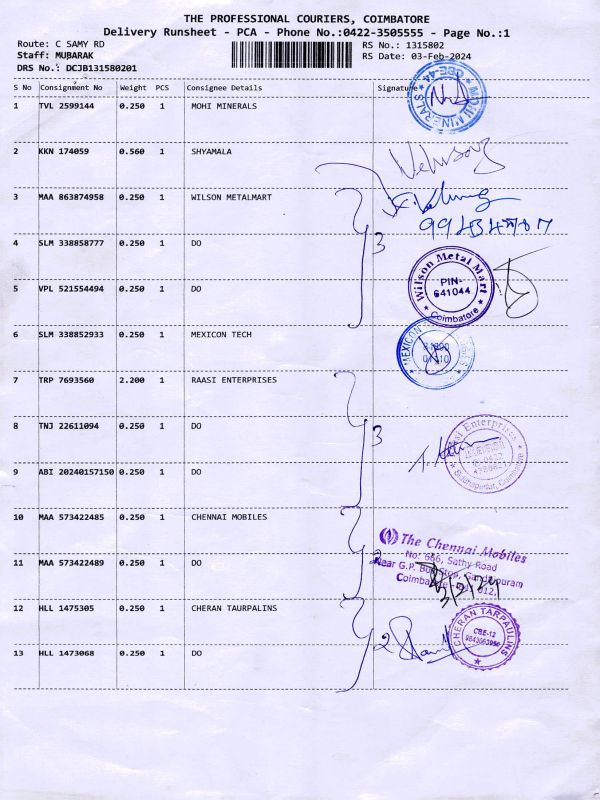 THE PROFESSIONAL COURIERS, COIMBATORE
Delivery Runsheet - PCA - Phone No.:0422-3505555 - Page No.:1
Route: C SAMY RD
RS No.: 1315802
Staff: MUBARAK
RS Date: 03-Feb-2024
DRS No.: DCJB131580201
S No Consignment No Weight PCS Consignee Details Signature
1 TVL 2599144 0.250 1 MOHI MINERALS
MOHI MINERALS
CBE-44
2 KKN 174059 0.560 1 SHYAMALA
3 MAA 863874958 0.250 1 WILSON METALMART
4 SLM 338858777 0.250 1 DO
3
Wilson Metal Mart
PIN-
641044
Coimbatore
5 VPL 521554494 0.250 1 DO
6 SLM 338852933 0.250 1 MEXICON TECH
MEXICON
7 TRP 7693560 2.200 1 RAASI ENTERPRISES
8 TNJ 22611094 0.250 1 DO
3
Enterprises
9 ABI 20240157150 0.250 1 DO
10 MAA 573422485 0.250 1 CHENNAI MOBILES
The Chennai Mobiles
Sathy Road
11 MAA 573422489 0.250 1 DO
2
Near G.P.
3/2/24
12 HLL 1475305 0.250 1 CHERAN TAURPALINS
CHERAN TARPAULINS
CBE-12
13 HLL 1473068 0.250 1 DO
2